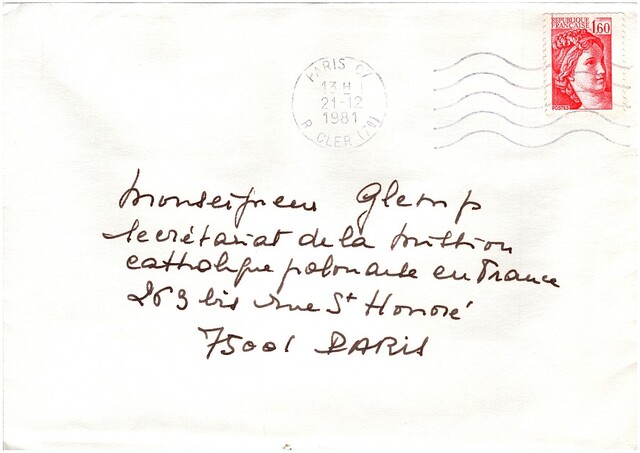 REPUBLIQUE
FRANÇAISE 1,60
PARIS 07
13H
21-12
1981
R. CLER (7e)
Monseigneur Glemp
Secrétariat de la Mission
catholique polonaise en France
263 bis rue St Honoré
75001 PARIS